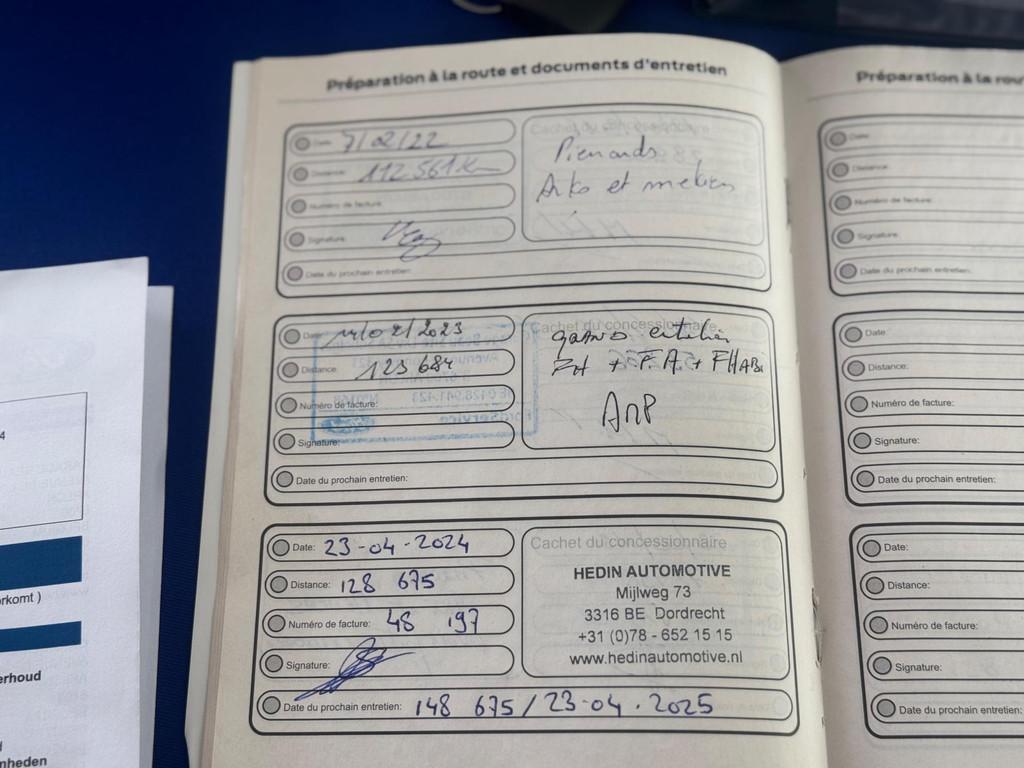 Préparation à la route et documents d'entretien
Date: 7/02/22
Distance: 112 561 km
Numéro de facture:
Signature:
Date du prochain entretien:
Date: 14/02/2023
Distance: 123 684
Numéro de facture:
Signature:
Date du prochain entretien:
Cachet du concessionnaire
FH + F.A +
Date: 23-04-2024
Distance: 128 675
Numéro de facture: 48 197
Signature:
Date du prochain entretien: 148 675 / 23-04.2025
Cachet du concessionnaire
HEDIN AUTOMOTIVE
Mijlweg 73
3316 BE Dordrecht
+31 (0)78 - 652 15 15
www.hedinautomotive.nl
Préparation à la
Date:
Distance:
Numéro de facture:
Signature:
Date du prochain entretien:
Date:
Distance:
Numéro de facture:
Signature:
Date du prochain entretien:
Date:
Distance:
Numéro de facture:
Signature:
Date du prochain entretien:
4
rkomt )
erhoud
nheden